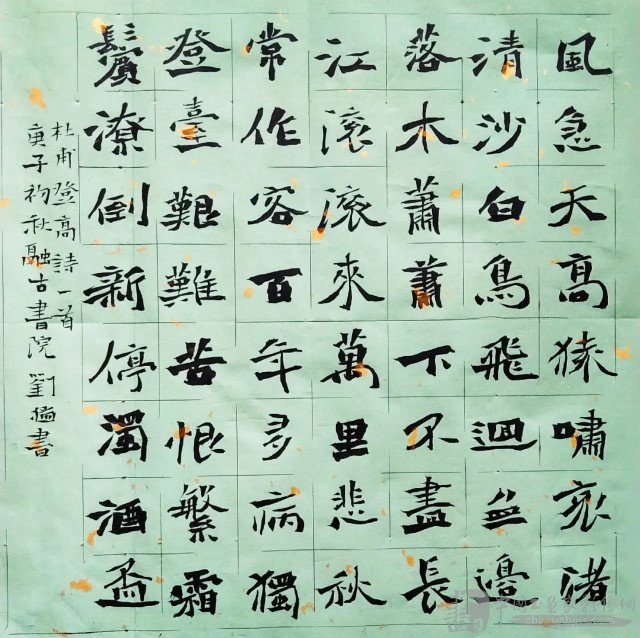 風急天高猿嘯哀渚
清沙白鳥飛迴無邊
落木蕭蕭下不盡長
江滚滚來萬里悲秋
常作客百年多病獨
登臺艱難苦恨繁霜
鬢潦倒新停濁酒盃
杜甫登高詩一首
庚子初秋融古書院劉書